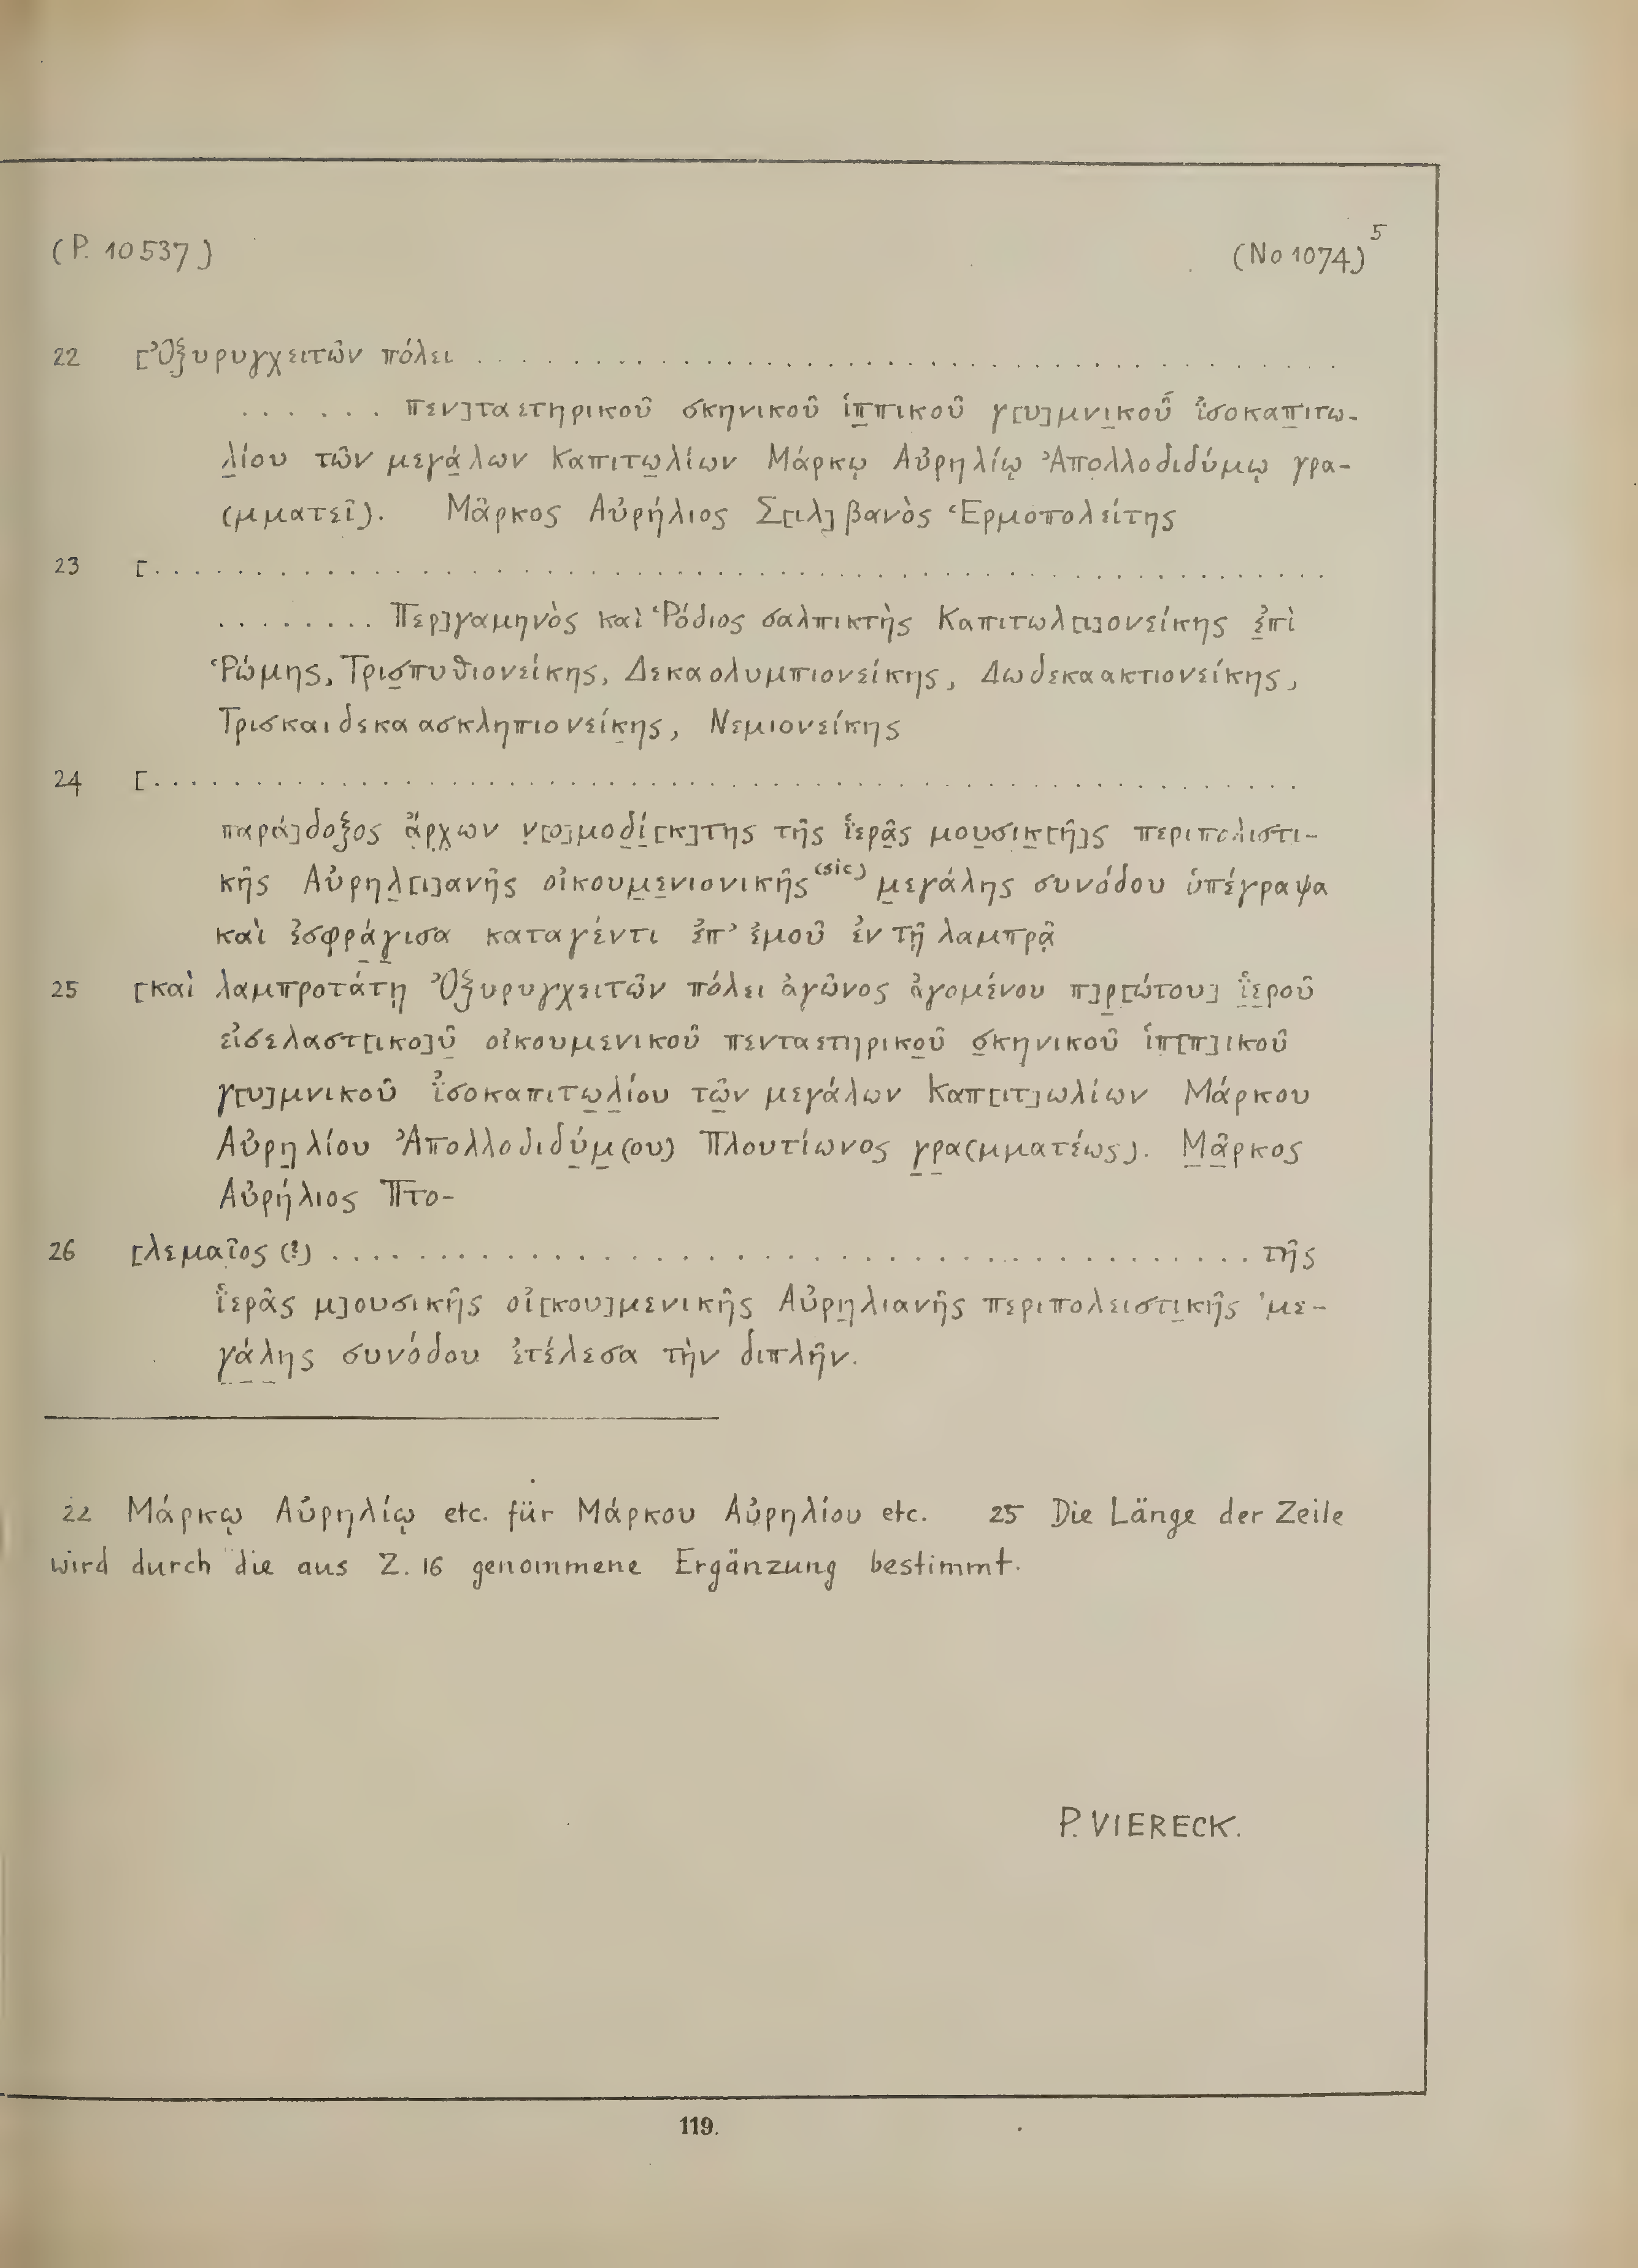 (P. 10537)
(No 1074) 5
22 [Ὀξυρυγχειτῶν πόλει . . . . . . . . . . . . . . . . . . . . . . . . . . . . . . . . . .
. . . . . . πεν]ταετηρικοῦ σκηνικοῦ ἱπ̣πικοῦ γ[υ]μνι̣κοῦ ἰ̈σοκαπ̣ιτω-
λ̣ίου τῶν μεγά̣λων Καπιτω̣λίων Μάρκῳ Αὐρηλίῳ Ἀπολλοδιδύμῳ γρα-
(μματεῖ). Μᾶρκος Αὐρήλιος Σ[ιλ]βανὸς Ἑρμοπολείτης
23 [. . . . . . . . . . . . . . . . . . . . . . . . . . . . . . . . . . . . . . . . . .
. . . . . . . . Περ]γαμηνὸς καὶ Ῥόδιος σαλπικτὴς Καπιτωλ[ι]ονείκης ἐ̣πὶ
Ῥώμης, Τρισ̣πυθιονείκης, Δεκαολυμπιονείκης, Δωδεκαακτιονείκης,
Τρισκαιδεκαασκληπιονείκ̣ης, Νεμιονείκης
24 [. . . . . . . . . . . . . . . . . . . . . . . . . . . . . . . . . . . . . . . . . .
παρά]δοξος ἄ̣ρ̣χ̣ων ν̣[ο]μοδ̣ί̣[κ]της τῆς ἱ̈ερᾶ̣ς μου̣σι̣κ̣[ῆ]ς περιπολιστι-
κῆς Αὐρηλ̣[ι]ανῆς οἰκουμ̣ε̣νιονικῆς (sic) μ̣εγάλης συνόδου ὑπέγραψα
καὶ ἐσφρά̣γ̣ισα καταγέντι ἐπ’ ἐμοῦ ἐν τῇ λαμπρᾷ
25 [καὶ λαμπροτάτῃ Ὀξυρυγχειτῶν πόλει ἀγῶνος ἀγομένου π]ρ̣[ώτου] ἱ̣̈ε̣ροῦ
εἰσελαστ[ικο]ῦ̣ οἰκουμενικοῦ πενταετηρικο̣ῦ σ̣κηνικοῦ ἱπ[π]ικοῦ
γ[υ]μνικοῦ ἰ̈σοκαπιτω̣λ̣ίου τῶ̣ν μεγάλων Καπ[ιτ]ωλίων Μάρκου
Αὐρη̣λίου Ἀπολλοδιδύ̣μ̣(ου) Πλουτίωνος γ̣ρ̣α(μματέως). Μ̣ᾶ̣ρκος
Αὐρήλιος Πτο-
26 [λεμαῖος (?) . . . . . . . . . . . . . . . . . . . . . . . . . . . . . . . . . . τῆς
ἱ̈ερᾶς μ]ουσικῆς οἰ[κου]μενικῆς Αὐρη̣λιανῆς περιπολειστι̣κῆς ’με-
γ̣ά̣λ̣ης συνόδου ἐτέλεσα τὴν διπλῆν.
22 Μάρκῳ Αὐρηλίῳ etc. für Μάρκου Αὐρηλίου etc. 25 Die Länge der Zeile
wird durch die aus Z. 16 genommene Ergänzung bestimmt.
P. VIERECK.
119.